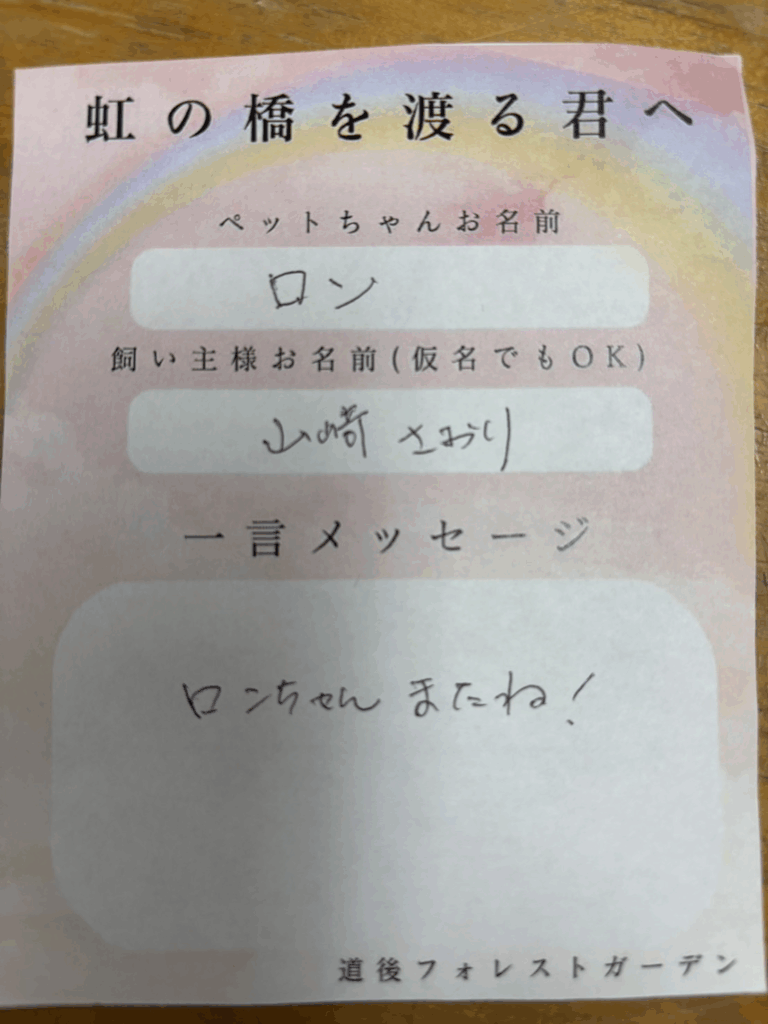 虹の橋を渡る君へ
ペットちゃんお名前
ロン
飼い主様お名前(仮名でもOK)
山﨑 さおり
一言メッセージ
ロンちゃん またね!
道後フォレストガーデン